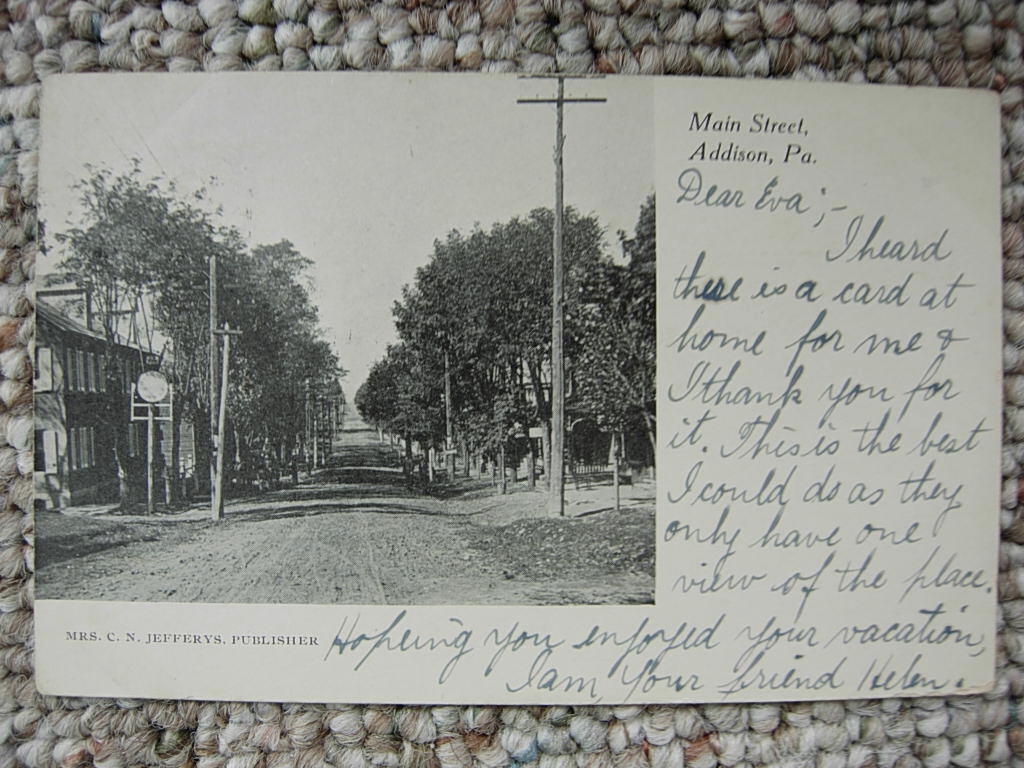 Main Street,
Addison, Pa.
Dear Eva;-
I heard
there is a card at
home for me &
I thank you for
it. This is the best
I could do as they
only have one
view of the place.
Hopeing you enjoyed your vacation,
I am, Your friend Helen.
MRS. C. N. JEFFERYS, PUBLISHER